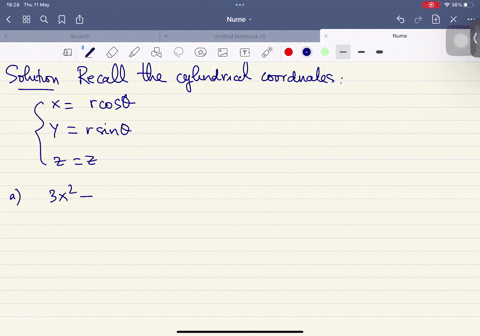 19:28 Thu 11 May
36%
Nume
Untitled Notebook (1)
Nume
Solution Recall the cylindrical coordnates:
x = r cosθ
y = r sinθ
z = z
a) 3x² —